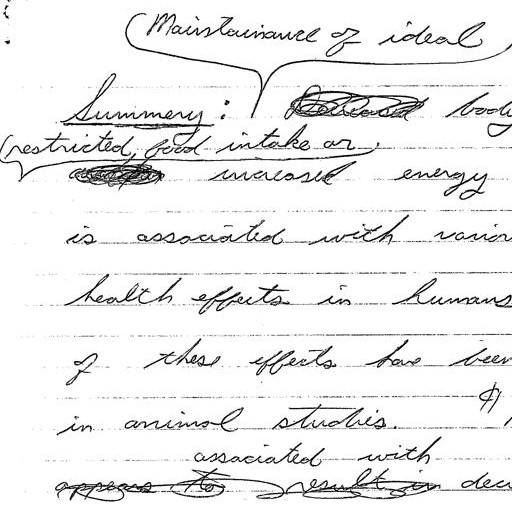 Maintainance of ideal
Summery: Decreased body
restricted food intake or
increased energy
is associated with
health effects in humans
of these effects have been
in animal studies.
associated with
appears to result in